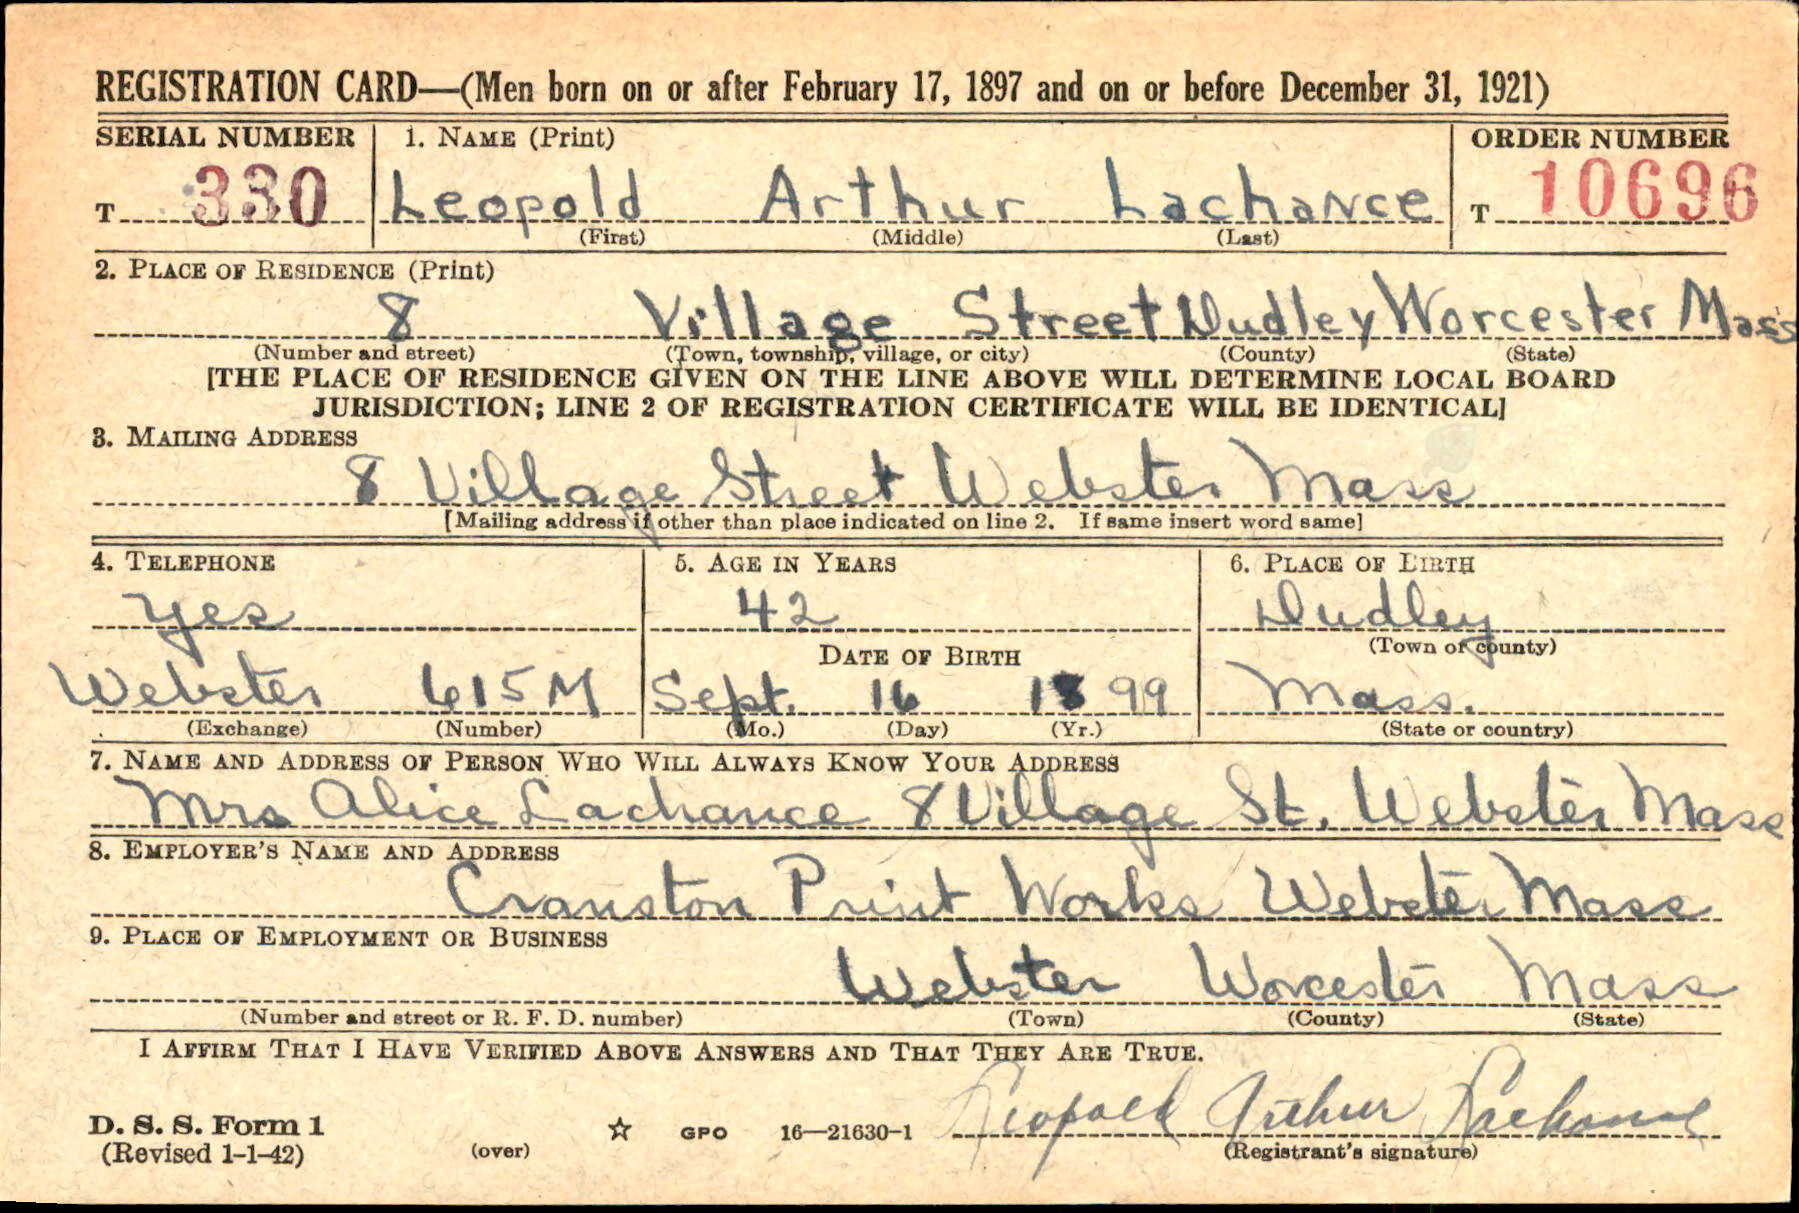 REGISTRATION CARD—(Men born on or after February 17, 1897 and on or before December 31, 1921)
SERIAL NUMBER 1. NAME (Print) ORDER NUMBER
T 330 Leopold Arthur Lachance T 10696
(First) (Middle) (Last)
2. PLACE OF RESIDENCE (Print)
8 Village Street Dudley Worcester Mass
(Number and street) (Town, township, village, or city) (County) (State)
[THE PLACE OF RESIDENCE GIVEN ON THE LINE ABOVE WILL DETERMINE LOCAL BOARD
JURISDICTION; LINE 2 OF REGISTRATION CERTIFICATE WILL BE IDENTICAL]
3. MAILING ADDRESS
8 Village Street Webster Mass
[Mailing address if other than place indicated on line 2. If same insert word same]
4. TELEPHONE 5. AGE IN YEARS 6. PLACE OF BIRTH
Yes 42 Dudley
DATE OF BIRTH (Town or county)
Webster 615M Sept. 16 1899 Mass.
(Exchange) (Number) (Mo.) (Day) (Yr.) (State or country)
7. NAME AND ADDRESS OF PERSON WHO WILL ALWAYS KNOW YOUR ADDRESS
Mrs Alice Lachance 8 Village St. Webster Mass
8. EMPLOYER'S NAME AND ADDRESS
Cranston Print Works Webster Mass
9. PLACE OF EMPLOYMENT OR BUSINESS
Webster Worcester Mass
(Number and street or R. F. D. number) (Town) (County) (State)
I AFFIRM THAT I HAVE VERIFIED ABOVE ANSWERS AND THAT THEY ARE TRUE.
D. S. S. Form 1 GPO 16—21630-1 Leopold Arthur Lachance
(Revised 1-1-42) (over) (Registrant's signature)